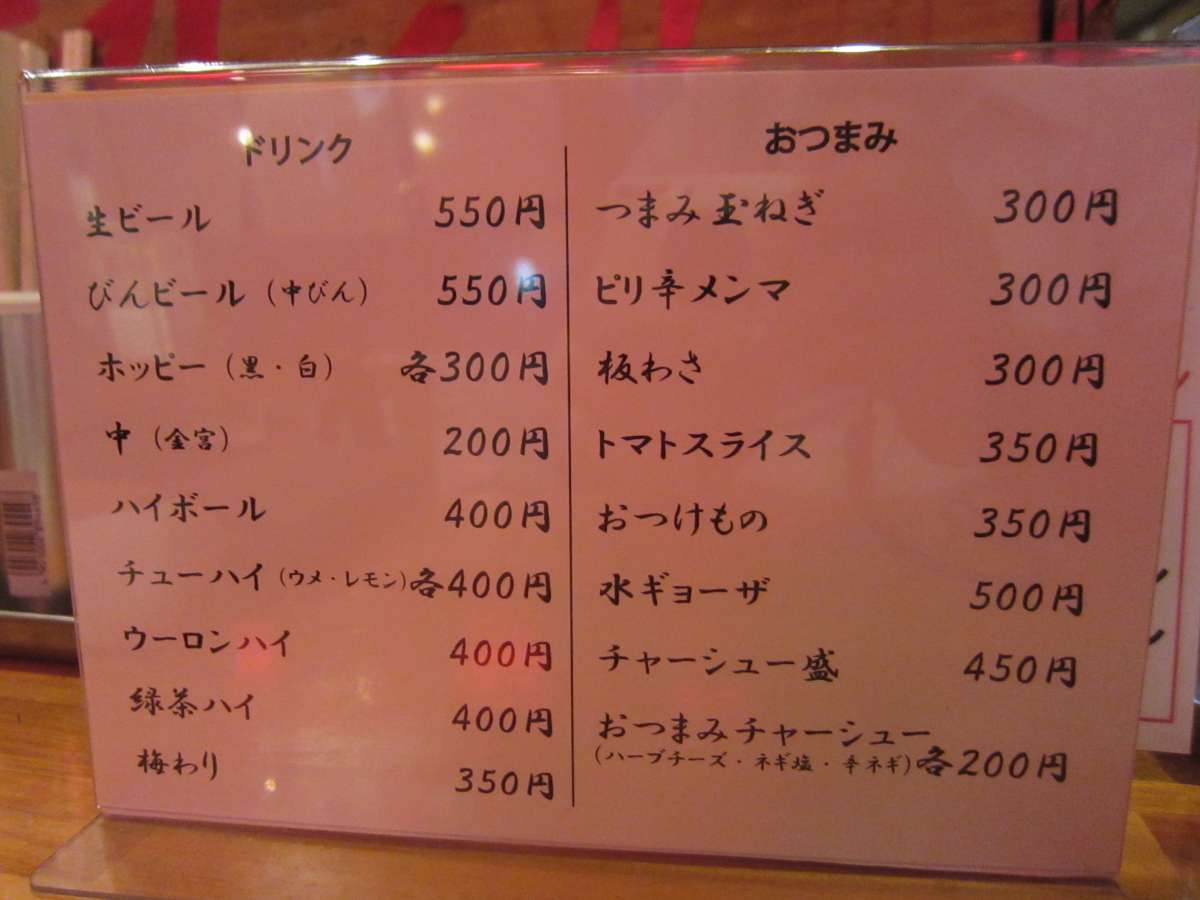 ドリンク
生ビール 550円
びんビール（中びん） 550円
ホッピー（黒・白） 各300円
中（金宮） 200円
ハイボール 400円
チューハイ（ウメ・レモン）各400円
ウーロンハイ 400円
緑茶ハイ 400円
梅わり 350円
おつまみ
つまみ玉ねぎ 300円
ピリ辛メンマ 300円
板わさ 300円
トマトスライス 350円
おつけもの 350円
水ギョーザ 500円
チャーシュー盛 450円
おつまみチャーシュー
（ハーブチーズ・ネギ塩・辛ネギ）各200円